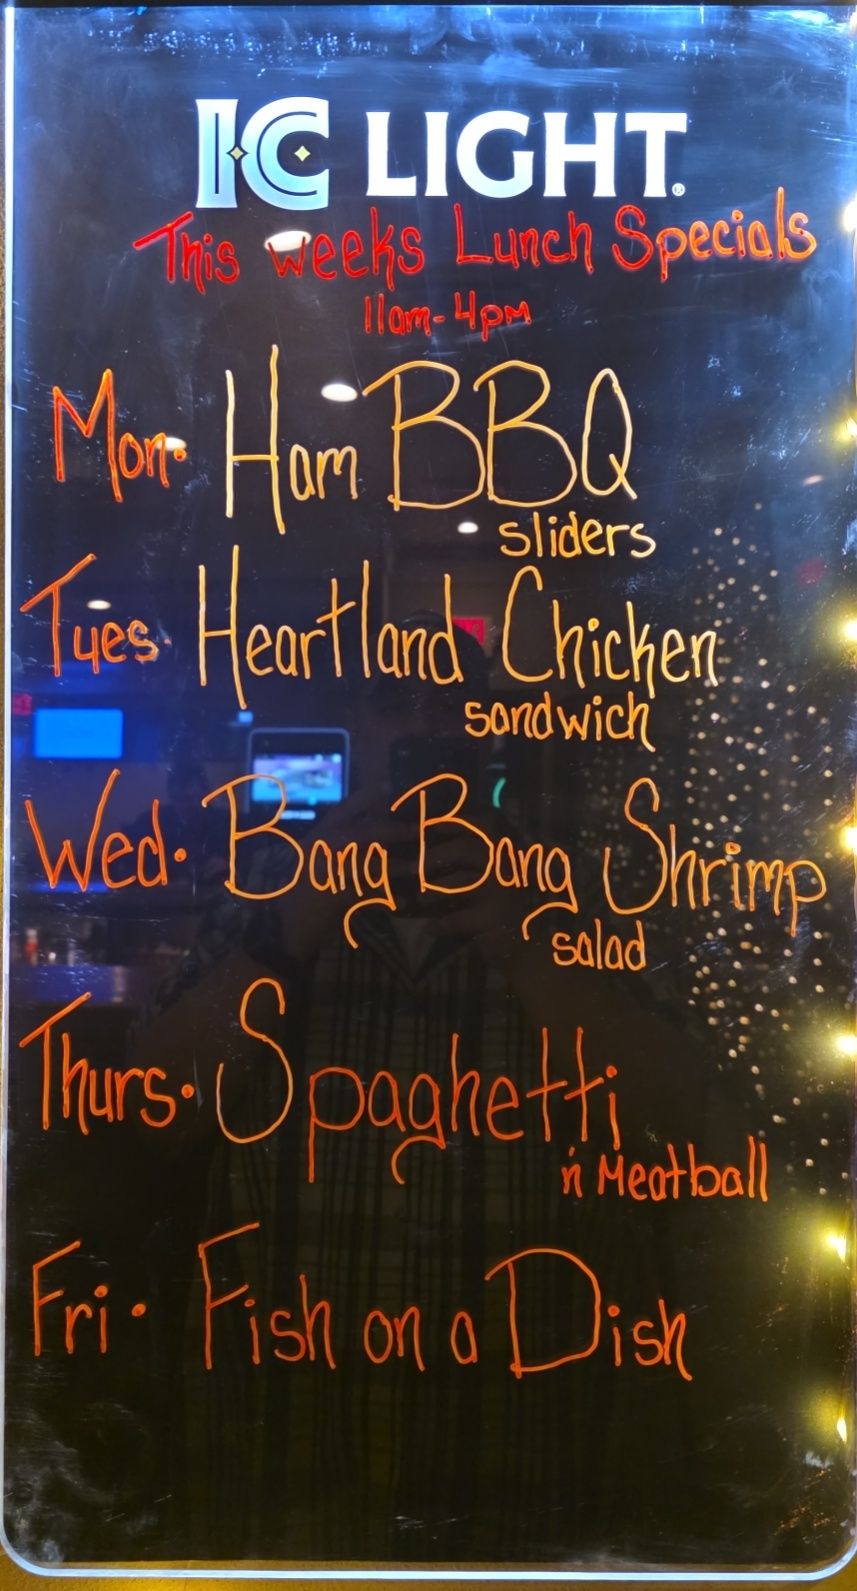 IC LIGHT®
This weeks Lunch Specials
11am-4pm
Mon. Ham BBQ
sliders
Tues. Heartland Chicken
sandwich
Wed. Bang Bang Shrimp
salad
Thurs. Spaghetti
'n Meatball
Fri. Fish on a Dish